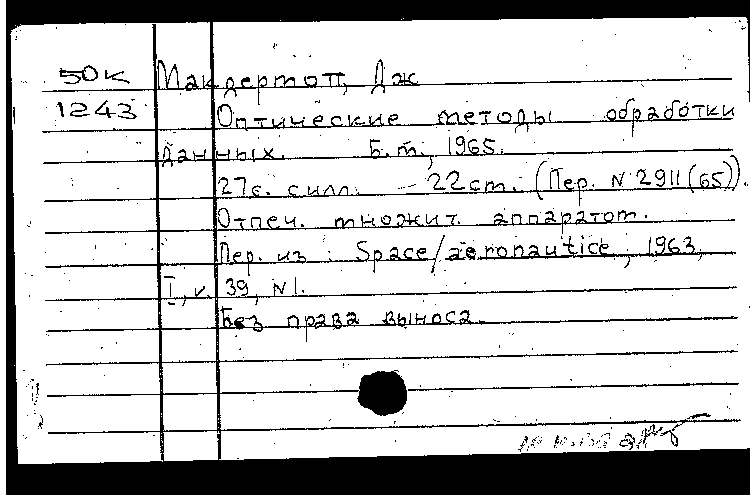 50к Макдермот, Дж
1243 Оптические методы обработки
данных. Б.м., 1965.
27с. с илл. - 22 cm. (Пер. N 2911(65)).
Отпеч. множит. аппаратом.
Пер. из : Space/aeronautice, 1963,
I, v. 39, N1.
Без права выноса.